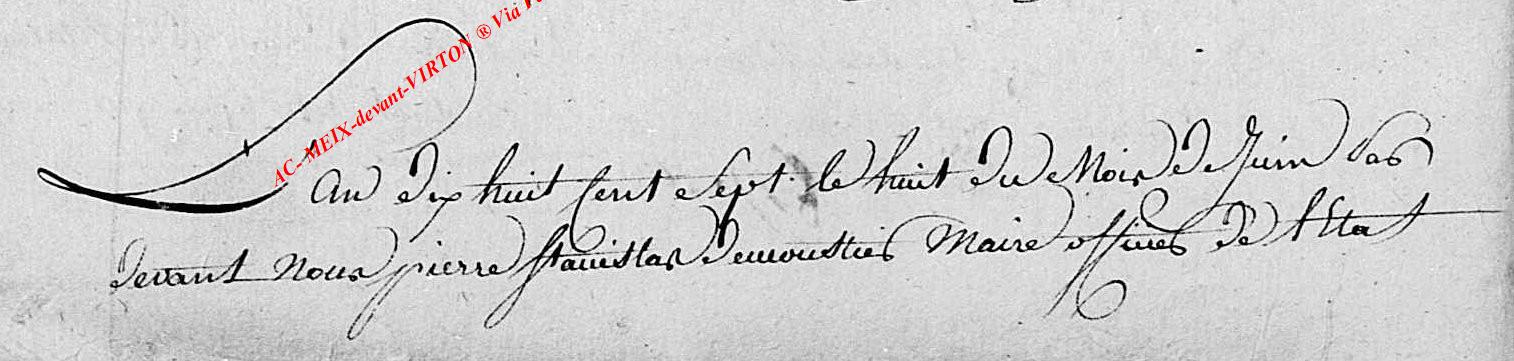 AC- MEIX-devant-VIRTON ® Via
L'an dix huit Cent Sept. le huit du Mois de Juin Par
devant Nous pierre Stanislas Demousties Maire officier de l'Etat